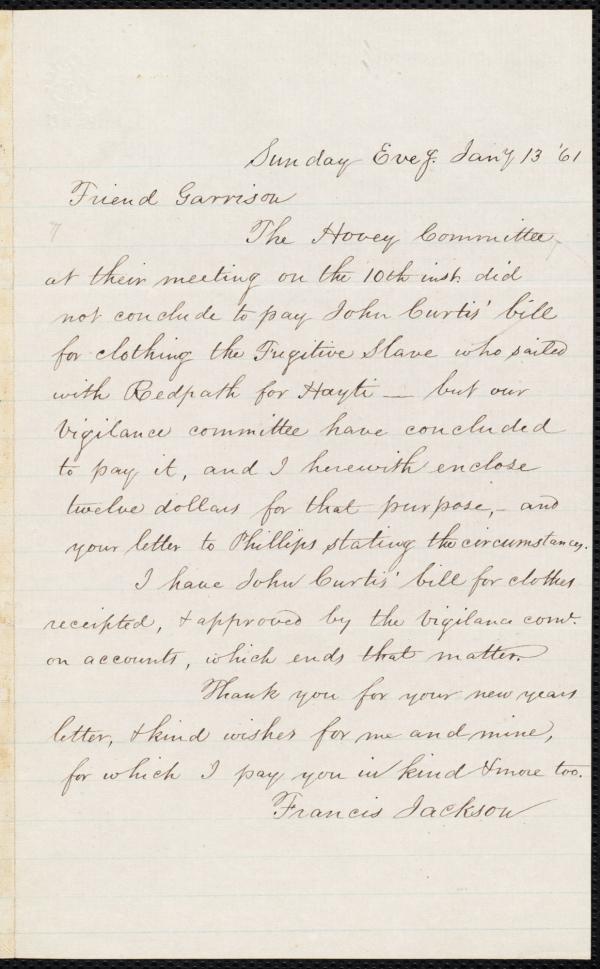 Sunday Eveg. Jany 13 '61
Friend Garrison
The Hovey Committee,
at their meeting on the 10th inst. did
not conclude to pay John Curtis' bill
for clothing the Fugitive Slave who sailed
with Redpath for Hayti — but our
Vigilance committee have concluded
to pay it, and I herewith enclose
twelve dollars for that purpose, – and
your letter to Phillips stating the circumstances.
I have John Curtis' bill for clothes
receipted, & approved by the Vigilance comt.
on accounts, which ends that matter.
Thank you for your new years
letter, & kind wishes for me and mine,
for which I pay you in kind & more too.
Francis Jackson